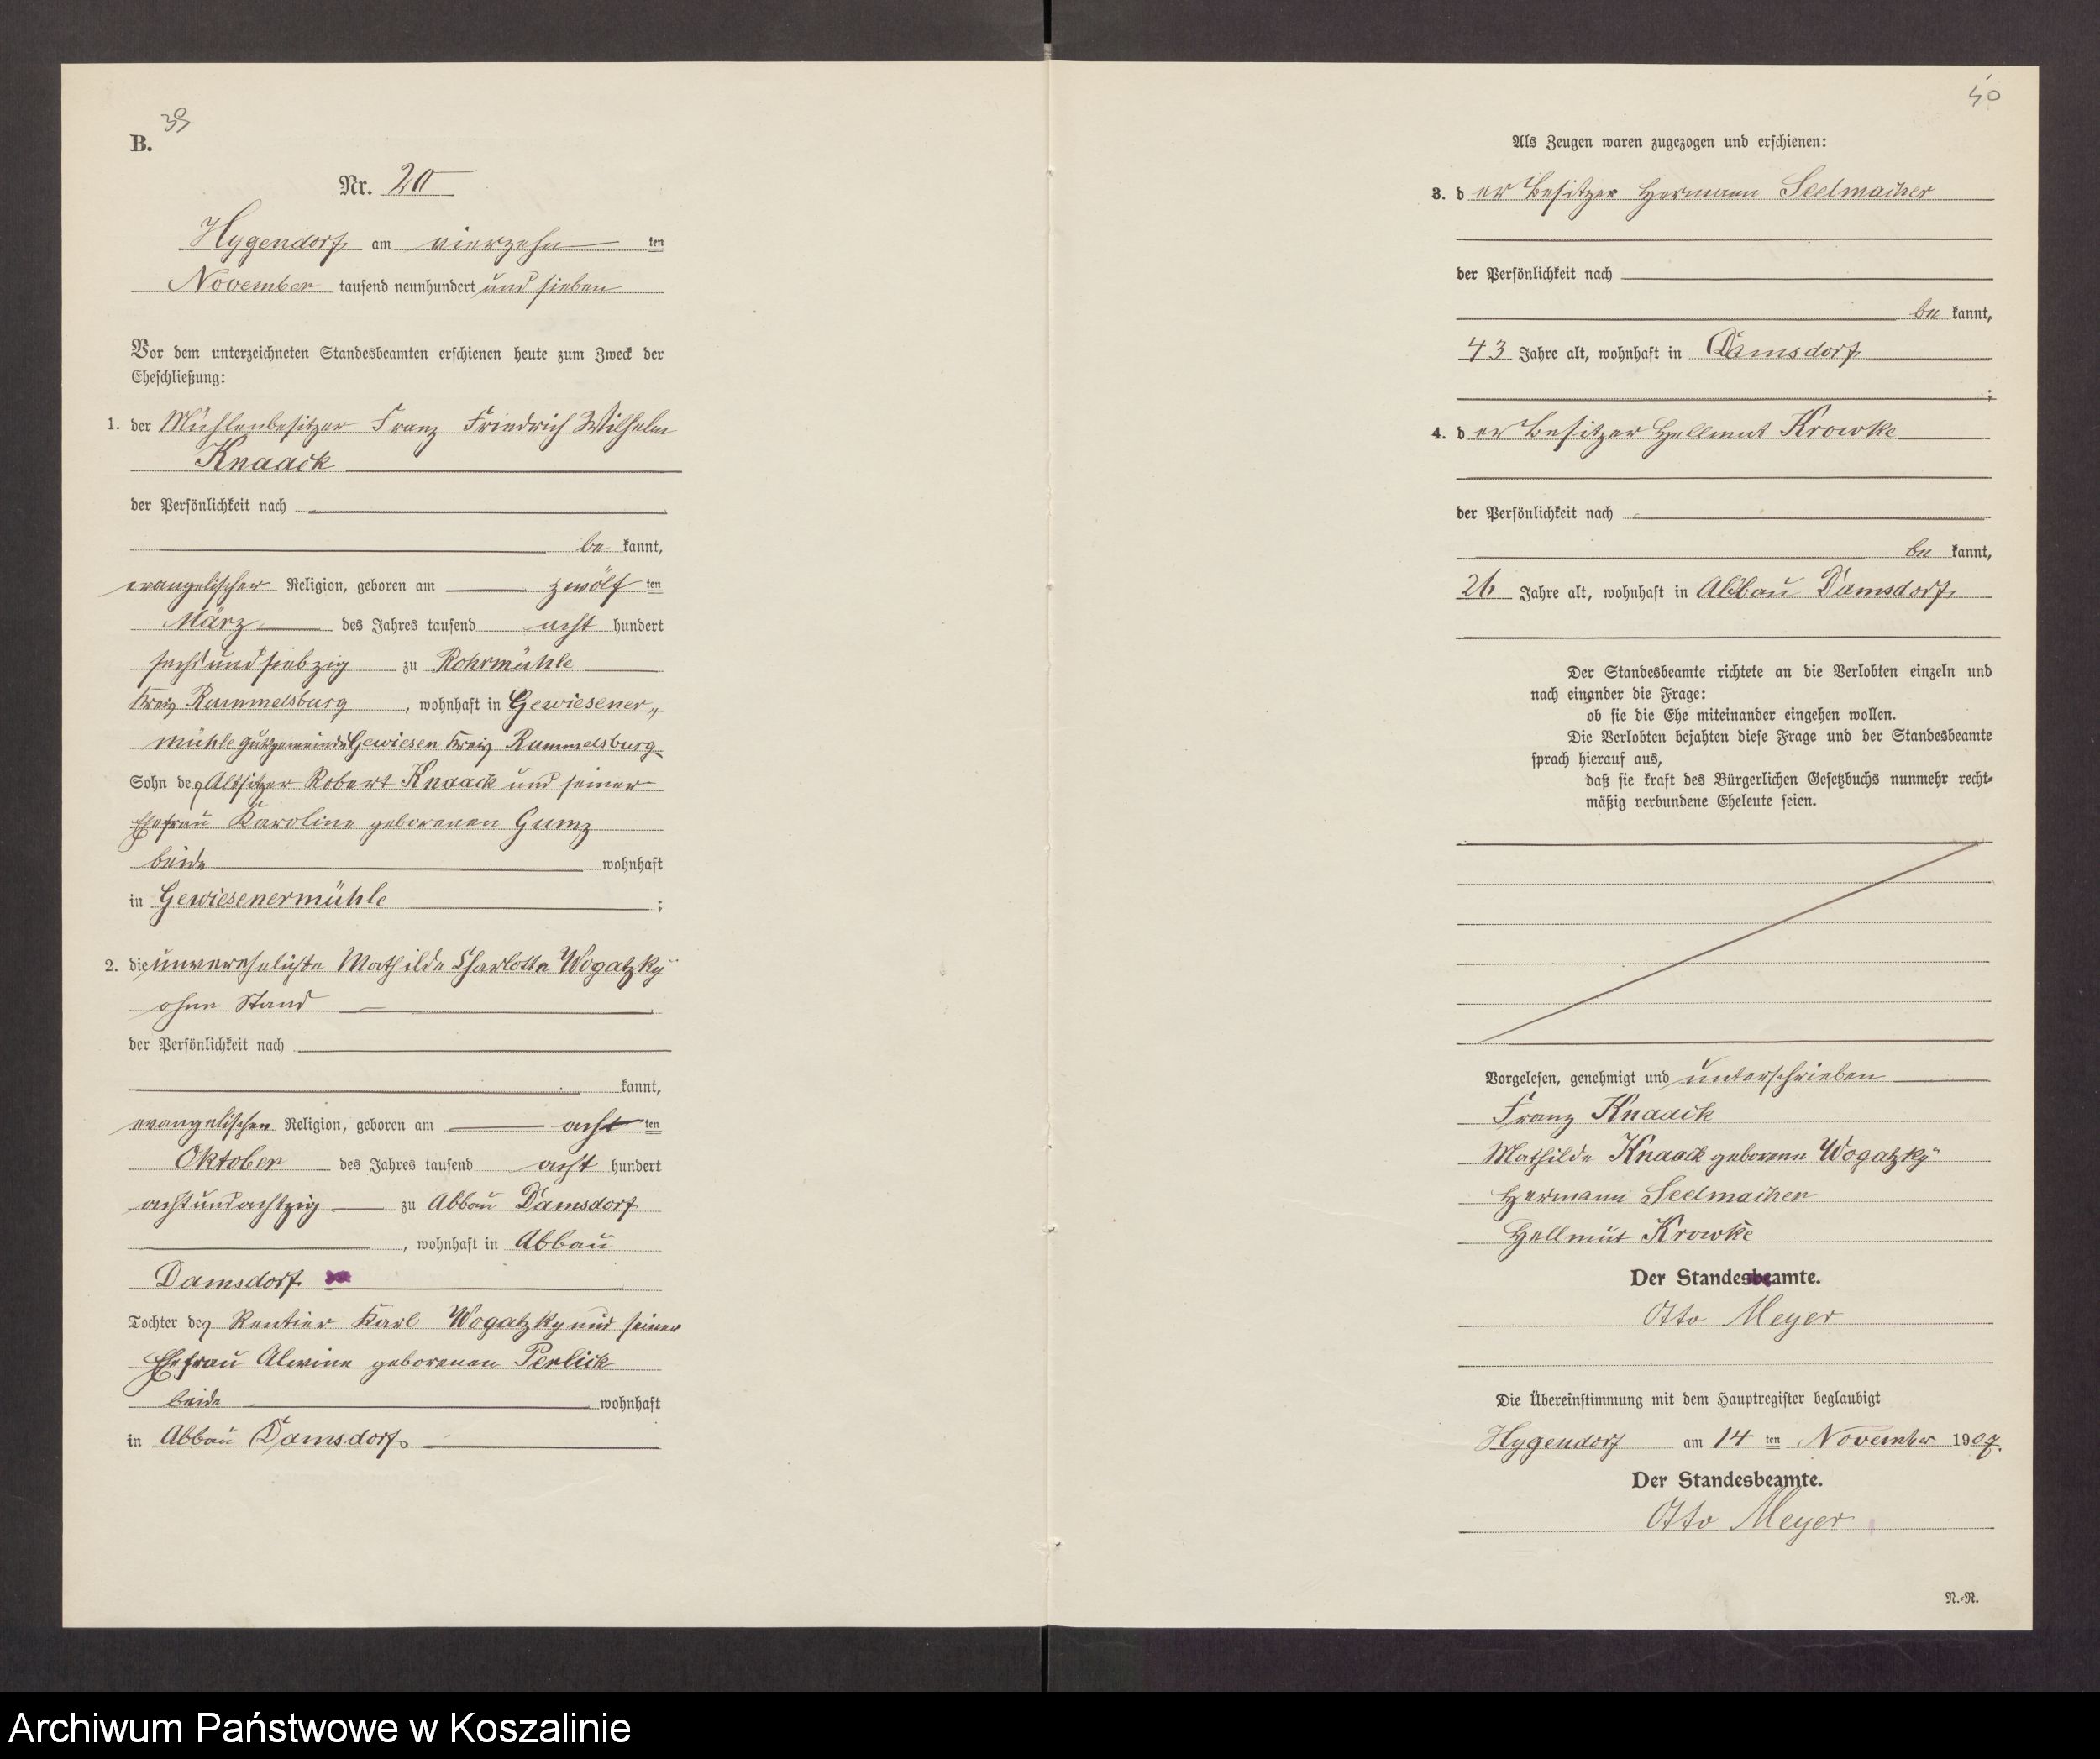 39
B.
Nr. 20
Hygendorf am vierzehn ten
November tausend neunhundert und sieben
Vor dem unterzeichneten Standesbeamten erschienen heute zum Zweck der
Eheschließung:
1. der Mühlenbesitzer Franz Friedrich Wilhelm
Knaack
der Persönlichkeit nach
be kannt,
evangelischer Religion, geboren am zwölf ten
März des Jahres tausend acht hundert
sechsundsiebzig zu Rohrmühle
Kreis Rummelsburg, wohnhaft in Gewiesener„
mühle Gutsgemeinde Gewiesen Kreis Rummelsburg
Sohn des Altsitzer Robert Knaack und seiner
Ehefrau Karoline geborenen Gumz
beide wohnhaft
in Gewiesenermühle;
2. die unverehelichte Mathilde Charlotte Wogatzky
ohne Stand
der Persönlichkeit nach
kannt,
evangelischen Religion, geboren am acht ten
Oktober des Jahres tausend acht hundert
achtundachtzig zu Abbau Damsdorf
, wohnhaft in Abbau
Damsdorf
Tochter des Rentier Karl Wogatzky und seiner
Ehefrau Alwine geborenen Perlick
beide wohnhaft
in Abbau Damsdorf
40
Als Zeugen waren zugezogen und erschienen:
3. der Besitzer Hermann Seelmacher
der Persönlichkeit nach
be kannt,
43 Jahre alt, wohnhaft in Damsdorf
;
4. der Besitzer Hellmut Krowke
der Persönlichkeit nach
be kannt,
26 Jahre alt, wohnhaft in Abbau Damsdorf
Der Standesbeamte richtete an die Verlobten einzeln und
nach einander die Frage:
ob sie die Ehe miteinander eingehen wollen.
Die Verlobten bejahten diese Frage und der Standesbeamte
sprach hierauf aus,
daß sie kraft des Bürgerlichen Gesetzbuchs nunmehr recht-
mäßig verbundene Eheleute seien.
Vorgelesen, genehmigt und unterschrieben
Franz Knaack
Mathilde Knaack geborene Wogatzky
Hermann Seelmacher
Hellmut Krowke
Der Standesbeamte.
Otto Meyer
Die Übereinstimmung mit dem Hauptregister beglaubigt
Hygendorf am 14 ten November 1907.
Der Standesbeamte.
Otto Meyer
N.-R.
Archiwum Państwowe w Koszalinie